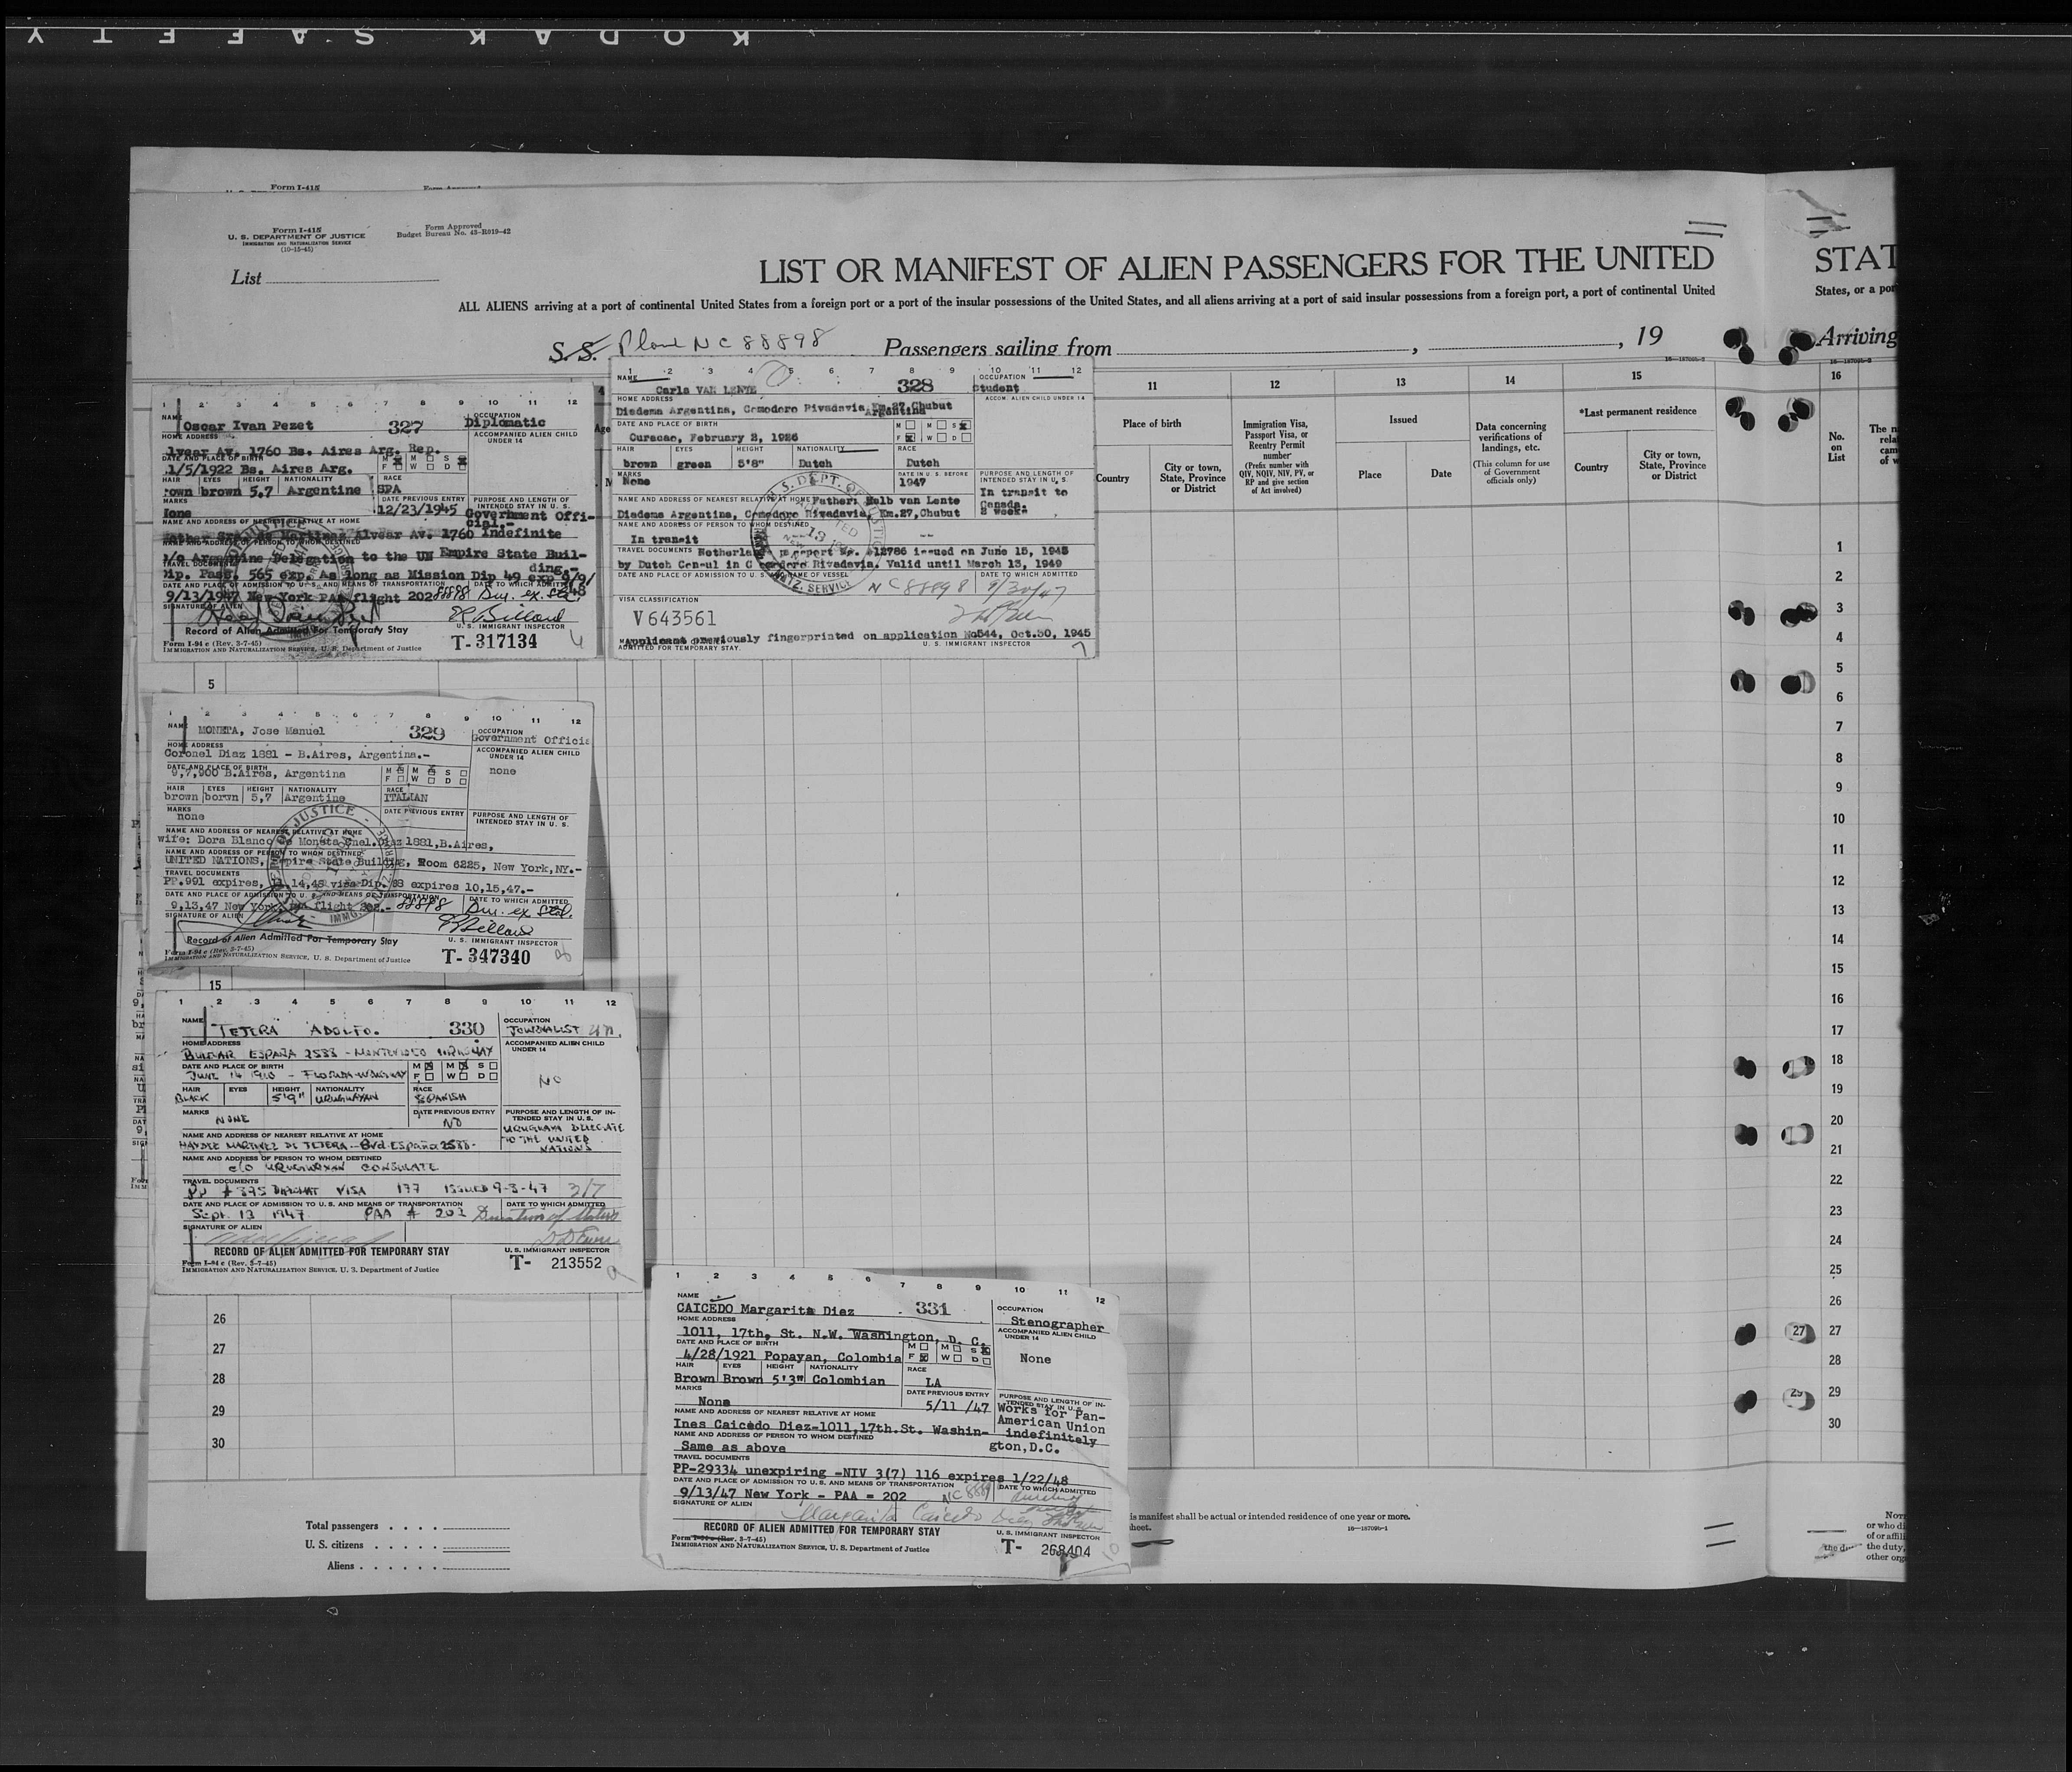 KODAK SAFETY
Form I-415
Form Approved
Form I-415
U. S. DEPARTMENT OF JUSTICE
IMMIGRATION AND NATURALIZATION SERVICE
(10-15-45)
Form Approved
Budget Bureau No. 43-R019-42
List
LIST OR MANIFEST OF ALIEN PASSENGERS FOR THE UNITED
STAT
ALL ALIENS arriving at a port of continental United States from a foreign port or a port of the insular possessions of the United States, and all aliens arriving at a port of said insular possessions from a foreign port, a port of continental United
States, or a por
S.S. Plane NC 88898 Passengers sailing from , , 19
Arriving
16—18709b-2
16—18709b-2
1 2 3 4 5 6 7 8 9 10 11 12
NAME Oscar Ivan Pezet 327
OCCUPATION Diplomatic
HOME ADDRESS
ACCOMPANIED ALIEN CHILD UNDER 14
lvear Av. 1760 Bs. Aires Arg. Rep.
DATE AND PLACE OF BIRTH
1/5/1922 Bs. Aires Arg.
M M S
F W D
HAIR EYES HEIGHT NATIONALITY RACE
rown brown 5,7 Argentine SPA
MARKS DATE PREVIOUS ENTRY PURPOSE AND LENGTH OF INTENDED STAY IN U. S.
12/23/1945 Government Offi-
cial.-
NAME AND ADDRESS OF NEAREST RELATIVE AT HOME
Sra. de Martinez Alvear Av. 1760 Indefinite
NAME AND ADDRESS OF PERSON TO WHOM DESTINED
c/o Argentine Delegation to the UN Empire State Buil-
ding.-
TRAVEL DOCUMENTS
Dip. Pass. 565 exp. As long as Mission Dip 49 exp 9/9/
48
DATE AND PLACE OF ADMISSION TO U. S. AND MEANS OF TRANSPORTATION DATE TO WHICH ADMITTED
9/13/1947 New York PAA flight 202 88898 Dur. ex. Stat.
SIGNATURE OF ALIEN
Record of Alien Admitted For Temporary Stay
U. S. IMMIGRANT INSPECTOR
Form I-94 c (Rev. 3-7-45)
IMMIGRATION AND NATURALIZATION SERVICE, U. S. Department of Justice
T- 317134
1 2 3 4 5 6 7 8 9 10 11 12
NAME Carla VAN LENTE 328
OCCUPATION Student
HOME ADDRESS
ACCOM. ALIEN CHILD UNDER 14
Diadema Argentina, Comodoro Rivadavia, Km.27, Chubut
Argentina
DATE AND PLACE OF BIRTH
Curacao, February 2, 1926
M M S
F W D
HAIR EYES HEIGHT NATIONALITY RACE
brown green 5'8" Dutch Dutch
MARKS None
DATE IN U. S. BEFORE 1947
PURPOSE AND LENGTH OF INTENDED STAY IN U. S.
In transit to
Canada.
2 weeks
NAME AND ADDRESS OF NEAREST RELATIVE AT HOME Father: Melb van Lente
Diadema Argentina, Comodoro Rivadavia, Km.27, Chubut
NAME AND ADDRESS OF PERSON TO WHOM DESTINED
In transit --
TRAVEL DOCUMENTS Netherland passport No. 12786 issued on June 15, 1945
by Dutch Consul in Comodoro Rivadavia. Valid until March 13, 1949
DATE AND PLACE OF ADMISSION TO U. S. NAME OF VESSEL DATE TO WHICH ADMITTED
NC 88898 9/30/47
VISA CLASSIFICATION
V 643561
Applicant previously fingerprinted on application No544, Oct.30, 1945
ADMITTED FOR TEMPORARY STAY. U. S. IMMIGRANT INSPECTOR
11 12 13 14 15 16
Place of birth
Country
City or town, State, Province or District
Immigration Visa, Passport Visa, or Reentry Permit number
(Prefix number with QIV, NQIV, NIV, PV, or RP and give section of Act involved)
Issued
Place
Date
Data concerning verifications of landings, etc.
(This column for use of Government officials only)
*Last permanent residence
Country
City or town, State, Province or District
No. on List
1 2 3 4 5 6 7 8 9 10 11 12 13 14 15 16 17 18 19 20 21 22 23 24 25 26 27 28 29 30
5
1 2 3 4 5 6 7 8 9 10 11 12
NAME MONETA, Jose Manuel 329
OCCUPATION Government Officia
HOME ADDRESS
Coronel Diaz 1881 - B.Aires, Argentina.-
ACCOMPANIED ALIEN CHILD UNDER 14
none
DATE AND PLACE OF BIRTH
9,7,900 B.Aires, Argentina
M M S
F W D
HAIR EYES HEIGHT NATIONALITY RACE
brown borwn 5,7 Argentine ITALIAN
MARKS none
DATE PREVIOUS ENTRY
PURPOSE AND LENGTH OF INTENDED STAY IN U. S.
NAME AND ADDRESS OF NEAREST RELATIVE AT HOME
wife: Dora Blanco de Moneta Cnel.Diaz 1881, B.Aires,
NAME AND ADDRESS OF PERSON TO WHOM DESTINED
UNITED NATIONS, Empire State Building, Room 6225, New York,NY.-
TRAVEL DOCUMENTS
PP.991 expires, 14,48 visa Dip. 38 expires 10,15,47.-
DATE AND PLACE OF ADMISSION TO U. S. AND MEANS OF TRANSPORTATION DATE TO WHICH ADMITTED
9,13,47 New York, flight 88898 Dur. ex Stat.
SIGNATURE OF ALIEN
Record of Alien Admitted For Temporary Stay
U. S. IMMIGRANT INSPECTOR
Form I-94 c (Rev. 3-7-45)
IMMIGRATION AND NATURALIZATION SERVICE, U. S. Department of Justice
T- 347340
15
1 2 3 4 5 6 7 8 9 10 11 12
NAME TEJERA ADOLFO. 330
OCCUPATION JOURNALIST
HOME ADDRESS
BULEVAR ESPAÑA 2588 - MONTEVIDEO URUGUAY
ACCOMPANIED ALIEN CHILD UNDER 14
NO
DATE AND PLACE OF BIRTH
JUNE 14 1910 - FLORIDA-URUGUAY
M M S
F W D
HAIR EYES HEIGHT NATIONALITY RACE
BLACK 5'9" URUGUAYAN SPANISH
MARKS NONE
DATE PREVIOUS ENTRY NO
PURPOSE AND LENGTH OF INTENDED STAY IN U. S.
URUGUAYA DELEGATE
TO THE UNITED
NATIONS
NAME AND ADDRESS OF NEAREST RELATIVE AT HOME
HAYDEE MARTINEZ DE TEJERA - Bvd. España 2588-
NAME AND ADDRESS OF PERSON TO WHOM DESTINED
C/O URUGUAYAN CONSULATE
TRAVEL DOCUMENTS
PP # 375 DIPLOMAT VISA 177 ISSUED 9-3-47 3/7
DATE AND PLACE OF ADMISSION TO U. S. AND MEANS OF TRANSPORTATION DATE TO WHICH ADMITTED
Sept. 13 1947 PAA # 202 Duration of Status
SIGNATURE OF ALIEN
RECORD OF ALIEN ADMITTED FOR TEMPORARY STAY
U. S. IMMIGRANT INSPECTOR
Form I-94 c (Rev. 3-7-45)
IMMIGRATION AND NATURALIZATION SERVICE, U. S. Department of Justice
T- 213552
26
27
28
29
30
1 2 3 4 5 6 7 8 9 10 11 12
NAME
CAICEDO Margarita Diez 331
OCCUPATION
Stenographer
HOME ADDRESS
1011, 17th, St. N.W. Washington, D. C.
ACCOMPANIED ALIEN CHILD UNDER 14
None
DATE AND PLACE OF BIRTH
4/28/1921 Popayan, Colombia
M M S
F W D
HAIR EYES HEIGHT NATIONALITY RACE
Brown Brown 5'3" Colombian LA
MARKS None
DATE PREVIOUS ENTRY 5/11 /47
PURPOSE AND LENGTH OF INTENDED STAY IN U. S.
Works for Pan-
American Union
indefinitely
NAME AND ADDRESS OF NEAREST RELATIVE AT HOME
Ines Caicedo Diez-1011,17th.St. Washin-
gton,D.C.
NAME AND ADDRESS OF PERSON TO WHOM DESTINED
Same as above
TRAVEL DOCUMENTS
PP-29334 unexpiring -NIV 3(7) 116 expires 1/22/48
DATE AND PLACE OF ADMISSION TO U. S. AND MEANS OF TRANSPORTATION DATE TO WHICH ADMITTED
9/13/47 New York - PAA = 202
SIGNATURE OF ALIEN
Margarita Caicedo Diez
RECORD OF ALIEN ADMITTED FOR TEMPORARY STAY
U. S. IMMIGRANT INSPECTOR
Form I-94 c (Rev. 3-7-45)
IMMIGRATION AND NATURALIZATION SERVICE, U. S. Department of Justice
T- 268404
Total passengers . . . .
U. S. citizens . . . . .
Aliens . . . . . .
is manifest shall be actual or intended residence of one year or more.
heet.
16—18709b-1